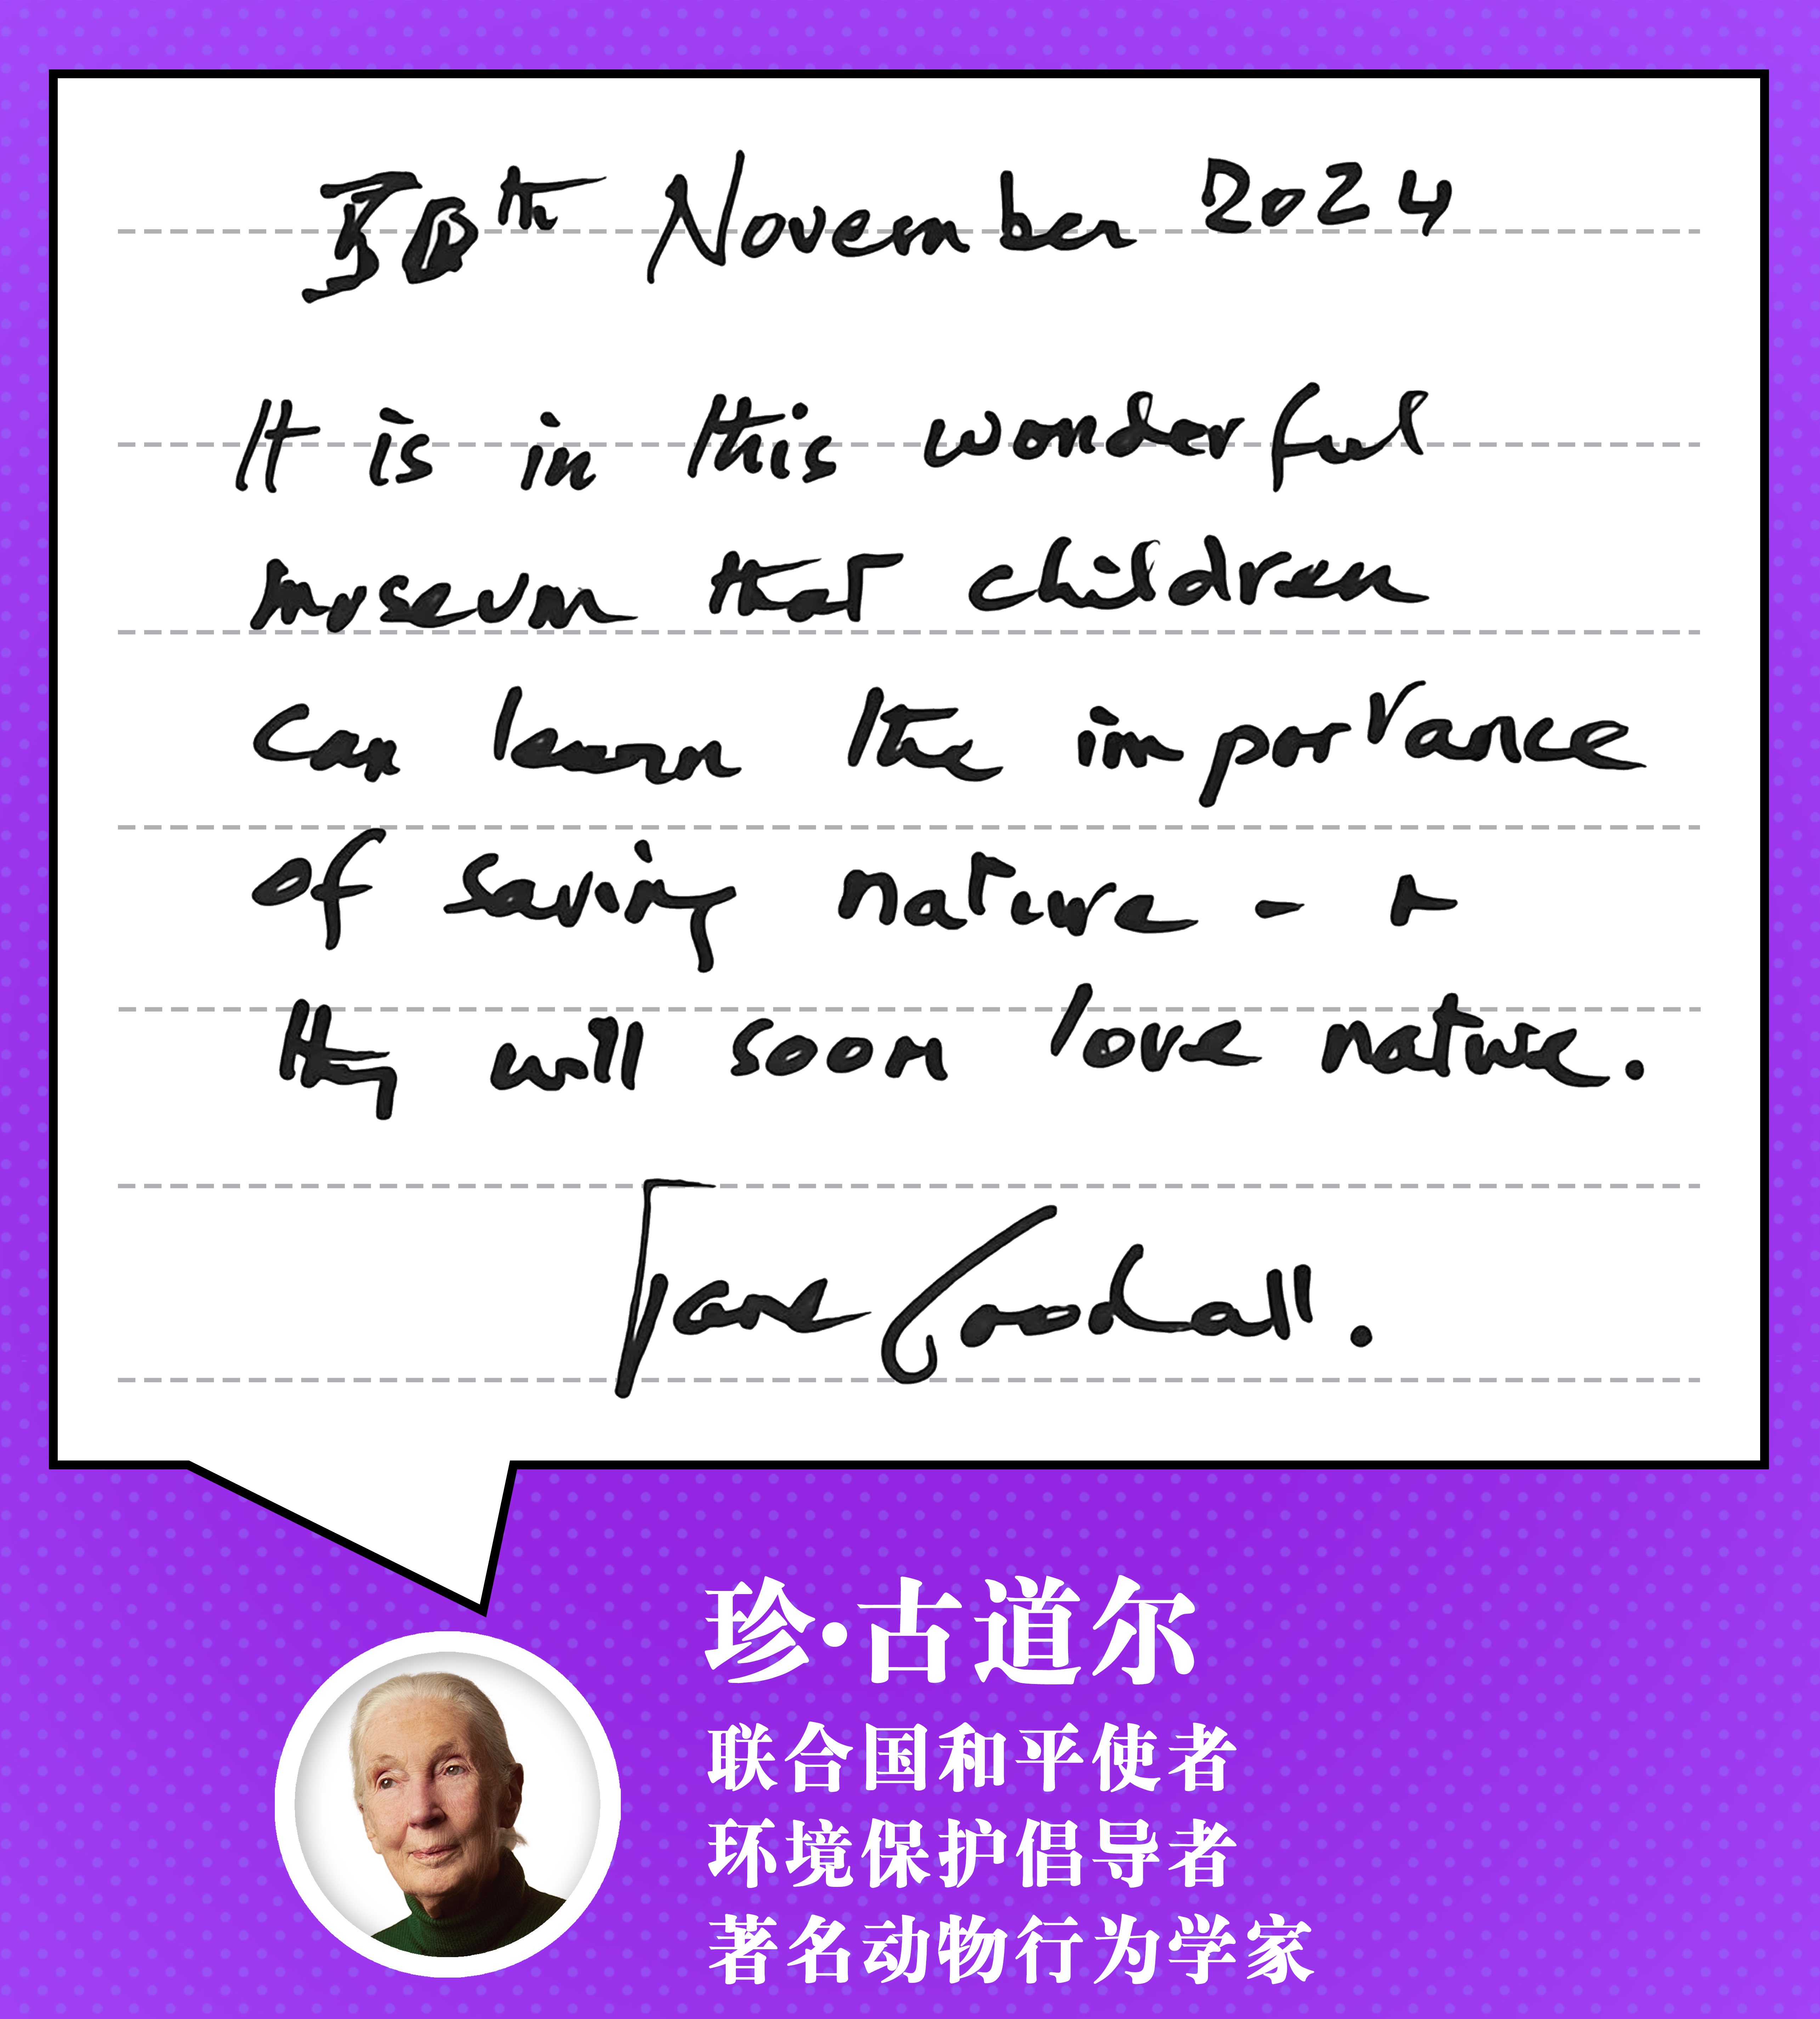 th November 2024
It is in this wonderful
museum that children
can learn the importance
of saving nature - +
they will soon love nature.
Jane Goodall.
珍·古道尔
联合国和平使者
环境保护倡导者
著名动物行为学家